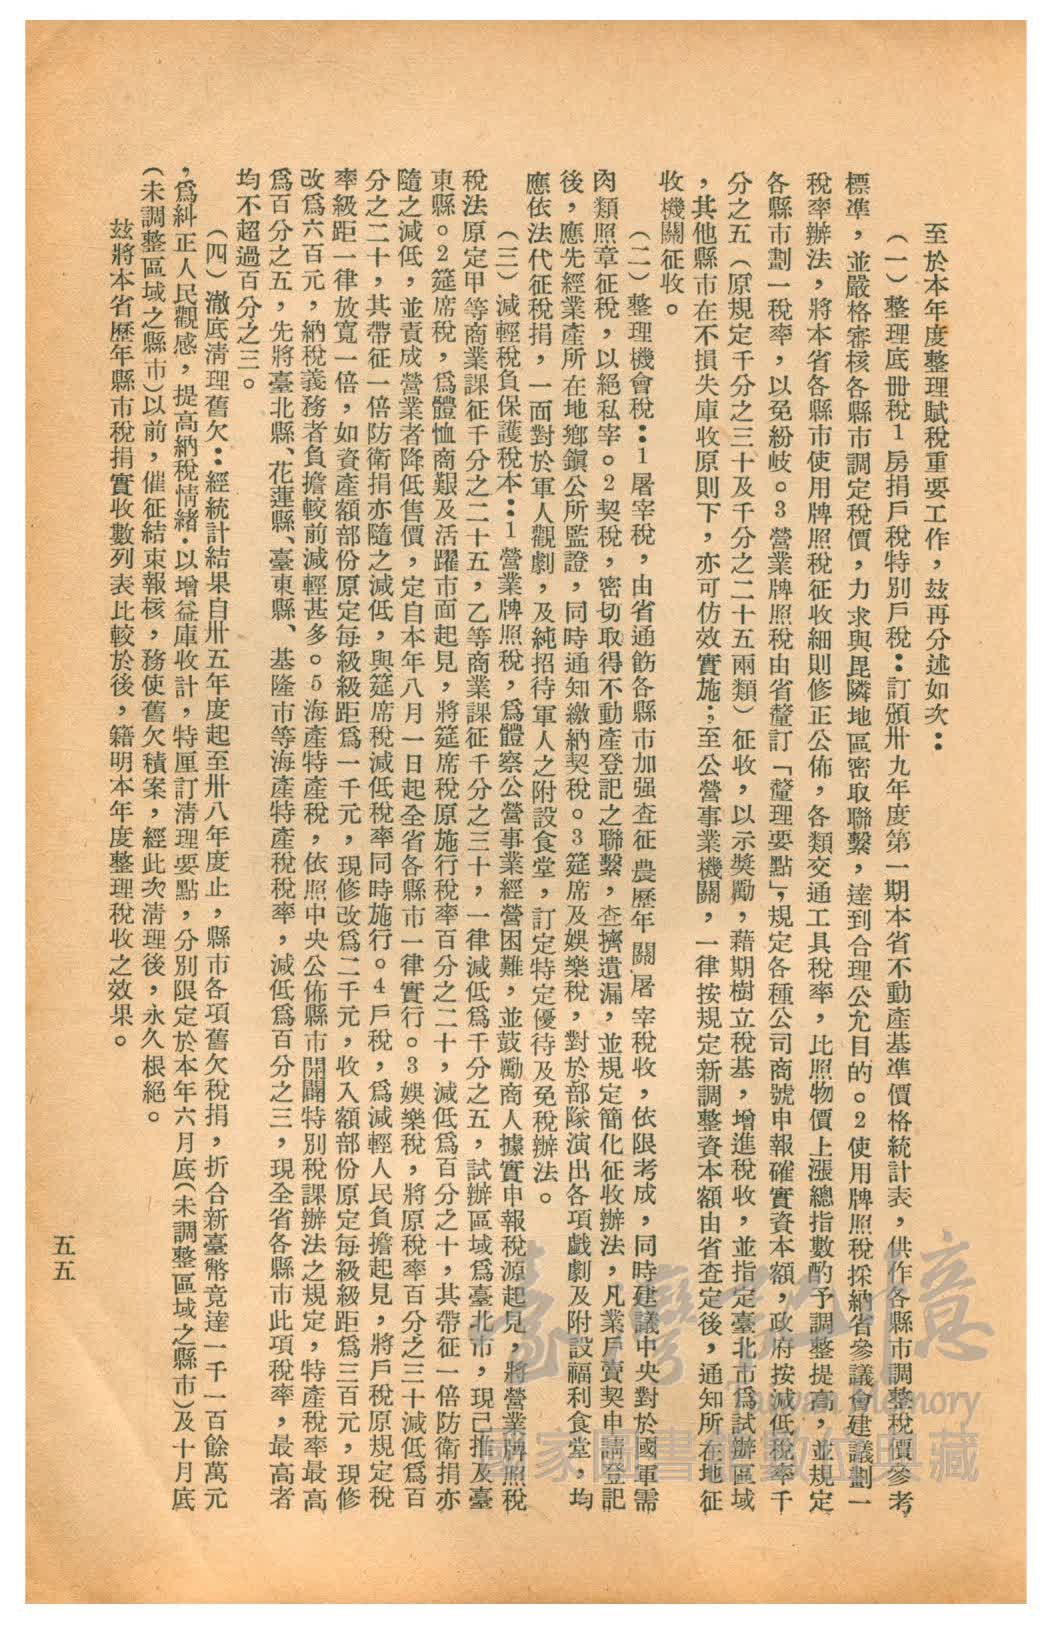 至於本年度整理賦稅重要工作，玆再分述如次：
（一）整理底册稅1房捐戶稅特別戶稅：訂頒卅九年度第一期本省不動產基準價格統計表，供作各縣市調整稅價參考
標準，並嚴格審核各縣市調定稅價，力求與毘隣地區密取聯繫，達到合理公允目的。2使用牌照稅採納省參議會建議劃一
稅率辦法，將本省各縣市使用牌照稅征收細則修正公佈，各類交通工具稅率，比照物價上漲總指數酌予調整提高，並規定
各縣市劃一稅率，以免紛岐。3營業牌照稅由省釐訂「釐理要點」，規定各種公司商號申報確實資本額，政府按減低稅率千
分之五（原規定千分之三十及千分之二十五兩類）征收，以示獎勵，藉期樹立稅基，增進稅收，並指定臺北市爲試辦區域
，其他縣市在不損失庫收原則下，亦可仿效實施；至公營事業機關，一律按規定新調整資本額由省查定後，通知所在地征
收機關征收。
（二）整理機會稅：1屠宰稅，由省通飭各縣市加强查征農歷年關屠宰稅收，依限考成，同時建議中央對於國軍需
肉類照章征稅，以絕私宰。2契稅，密切取得不動產登記之聯繫，查擠遺漏，並規定簡化征收辦法，凡業戶賣契申請登記
後，應先經業產所在地鄉鎭公所監證，同時通知繳納契稅。3筵席及娛樂稅，對於部隊演出各項戲劇及附設福利食堂，均
應依法代征稅捐，一面對於軍人觀劇，及純招待軍人之附設食堂，訂定特定優待及免稅辦法。
（三）減輕稅負保護稅本：1營業牌照稅，爲體察公營事業經營困難，並鼓勵商人據實申報稅源起見，將營業牌照稅
稅法原定甲等商業課征千分之二十五，乙等商業課征千分之三十，一律減低爲千分之五，試辦區域爲臺北市，現已推及臺
東縣。2筵席稅，爲體恤商艱及活躍市面起見，將筵席稅原施行稅率百分之二十，減低爲百分之十，其帶征一倍防衛捐亦
隨之減低，並責成營業者降低售價，定自本年八月一日起全省各縣市一律實行。3娛樂稅，將原稅率百分之三十減低爲百
分之二十，其帶征一倍防衛捐亦隨之減低，與筵席稅減低稅率同時施行。4戶稅，爲減輕人民負擔起見，將戶稅原規定稅
率級距一律放寬一倍，如資產額部份原定每級級距爲一千元，現修改爲二千元，收入額部份原定每級級距爲三百元，現修
改爲六百元，納稅義務者負擔較前減輕甚多。5海產特產稅，依照中央公佈縣市開闢特別稅課辦法之規定，特產稅率最高
爲百分之五，先將臺北縣、花蓮縣、臺東縣、基隆市等海產特產稅稅率，減低爲百分之三，現全省各縣市此項稅率，最高者
均不超過百分之三。
（四）澈底淸理舊欠：經統計結果自卅五年度起至卅八年度止，縣市各項舊欠稅捐，折合新臺幣竟達一千一百餘萬元
，爲糾正人民觀感，提高納稅情緖．以增益庫收計，特厘訂淸理要點，分別限定於本年六月底（未調整區域之縣市）及十月底
（未調整區域之縣市）以前，催征結束報核，務使舊欠積案，經此次淸理後，永久根絕。
玆將本省歷年縣市稅捐實收數列表比較於後，籍明本年度整理稅收之效果。
五五
臺灣記憶
Taiwan Memory
國家圖書館數位典藏